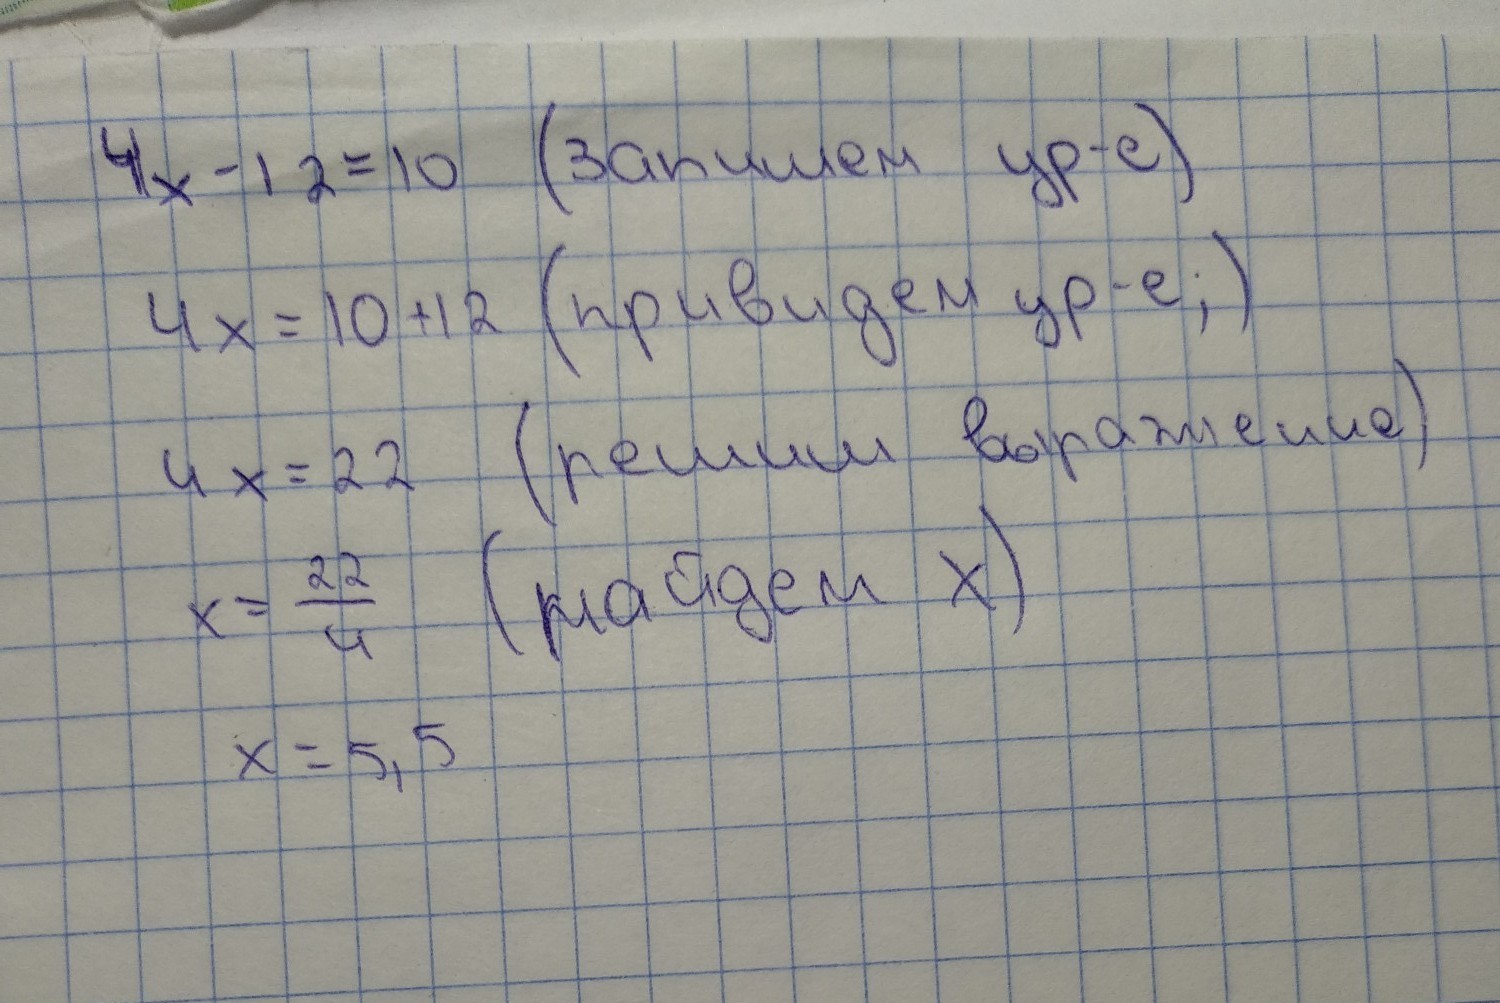 4x-12=10 (запишем ур-е)
4x=10+12 (привидем ур-е;)
4x=22 (решим выражение)
x=22/4 (найдем x)
x=5,5